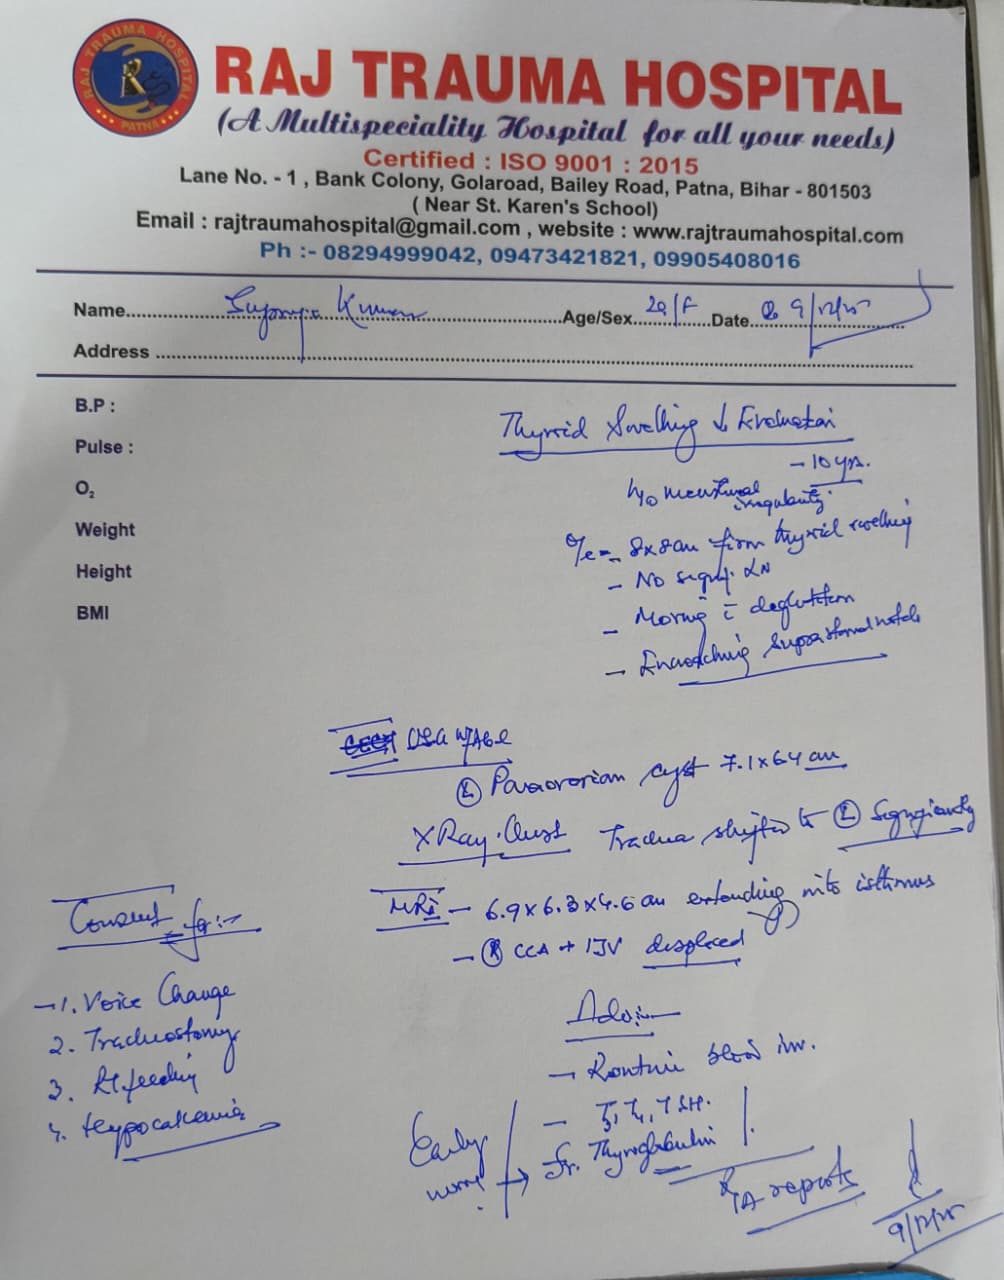 RAJ TRAUMA HOSPITAL PATNA
RAJ TRAUMA HOSPITAL
(A Multispeciality Hospital for all your needs)
Certified : ISO 9001 : 2015
Lane No. - 1 , Bank Colony, Golaroad, Bailey Road, Patna, Bihar - 801503
( Near St. Karen's School)
Email : rajtraumahospital@gmail.com , website : www.rajtraumahospital.com
Ph :- 08294999042, 09473421821, 09905408016
Name Kumari Age/Sex 20/F Date 9/12/25
Address
B.P :
Pulse :
O₂
Weight
Height
BMI
Thyroid Swelling ↓ Evaluation
- 10 yrs.
H/o menstrual
irregularity
O/e - 8x8cm firm thyroid swelling
- No signf. LN
- Moving c̄ deglutition
- Encroaching Suprasternal notch
USG W/Abd
(L) Paraovarian cyst 7.1x64 cm
X Ray. Chest Trachea shifted to (L) Significantly
MRI - 6.9x6.3x4.6 cm extending into isthmus
- (R) CCA + IJV displaced
Consent for :-
1. Voice Change
2. Tracheostomy
3. RT feeding
4. Hypocalcemia
Advice
- Routine blood inv.
- T3, T4, TSH.
→ Sr. Thyroglobulin
Early
reports
9/12/25